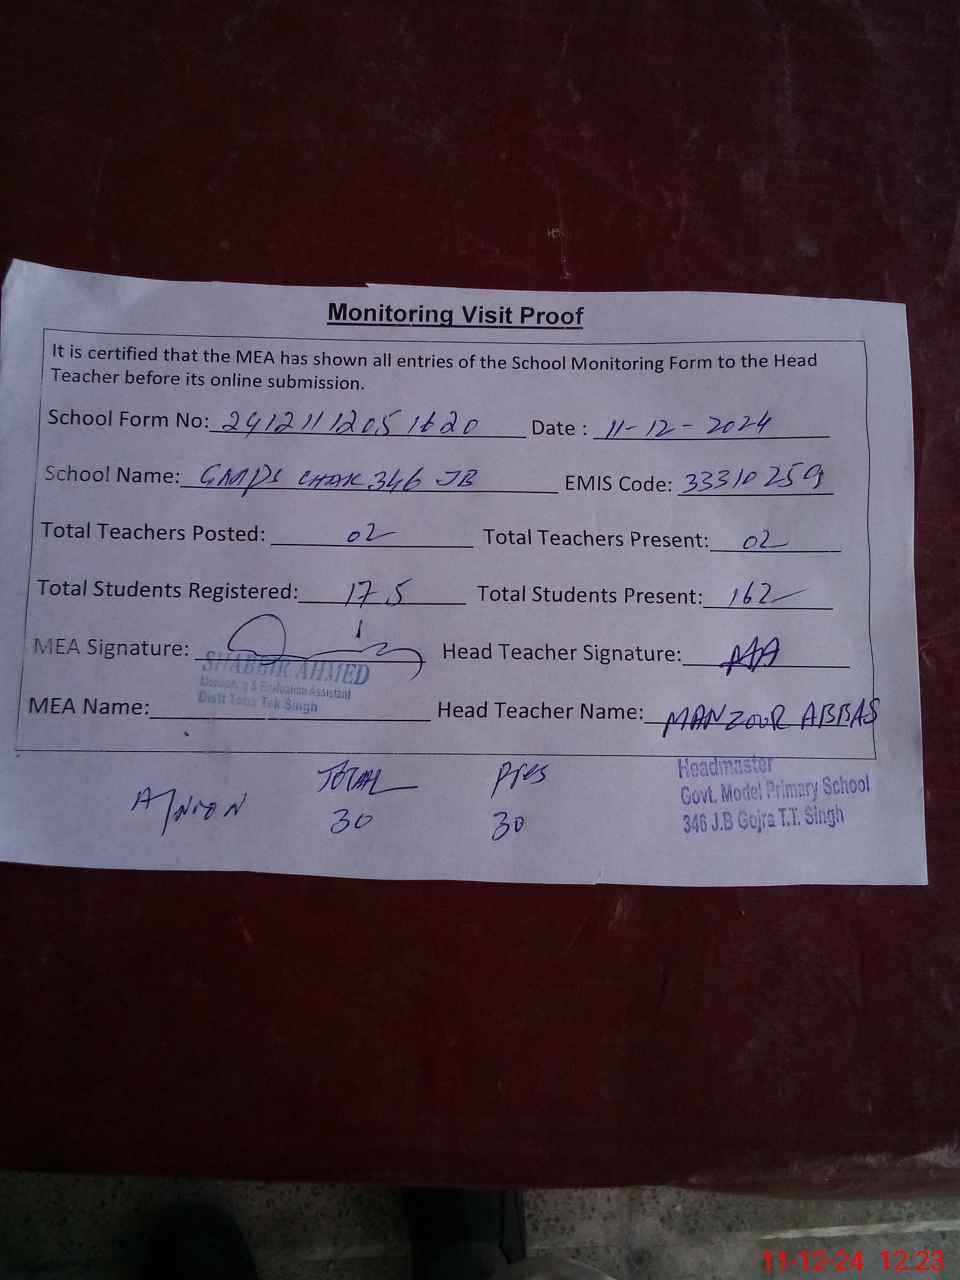 Monitoring Visit Proof
It is certified that the MEA has shown all entries of the School Monitoring Form to the Head
Teacher before its online submission.
School Form No: 2412111205 1620 Date : 11-12-2024
School Name: GMPS CHAK 346 JB EMIS Code: 33310259
Total Teachers Posted: 02 Total Teachers Present: 02
Total Students Registered: 175 Total Students Present: 162
MEA Signature: Head Teacher Signature: MA
SHABBIR AHMED
Monitoring & Evaluation Assistant
Distt Toba Tek Singh
MEA Name: Head Teacher Name: MANZOOR ABBAS
Headmaster
Govt. Model Primary School
346 J.B Gojra T.T. Singh
TOTAL Pres
30 30
11-12-24 12:23